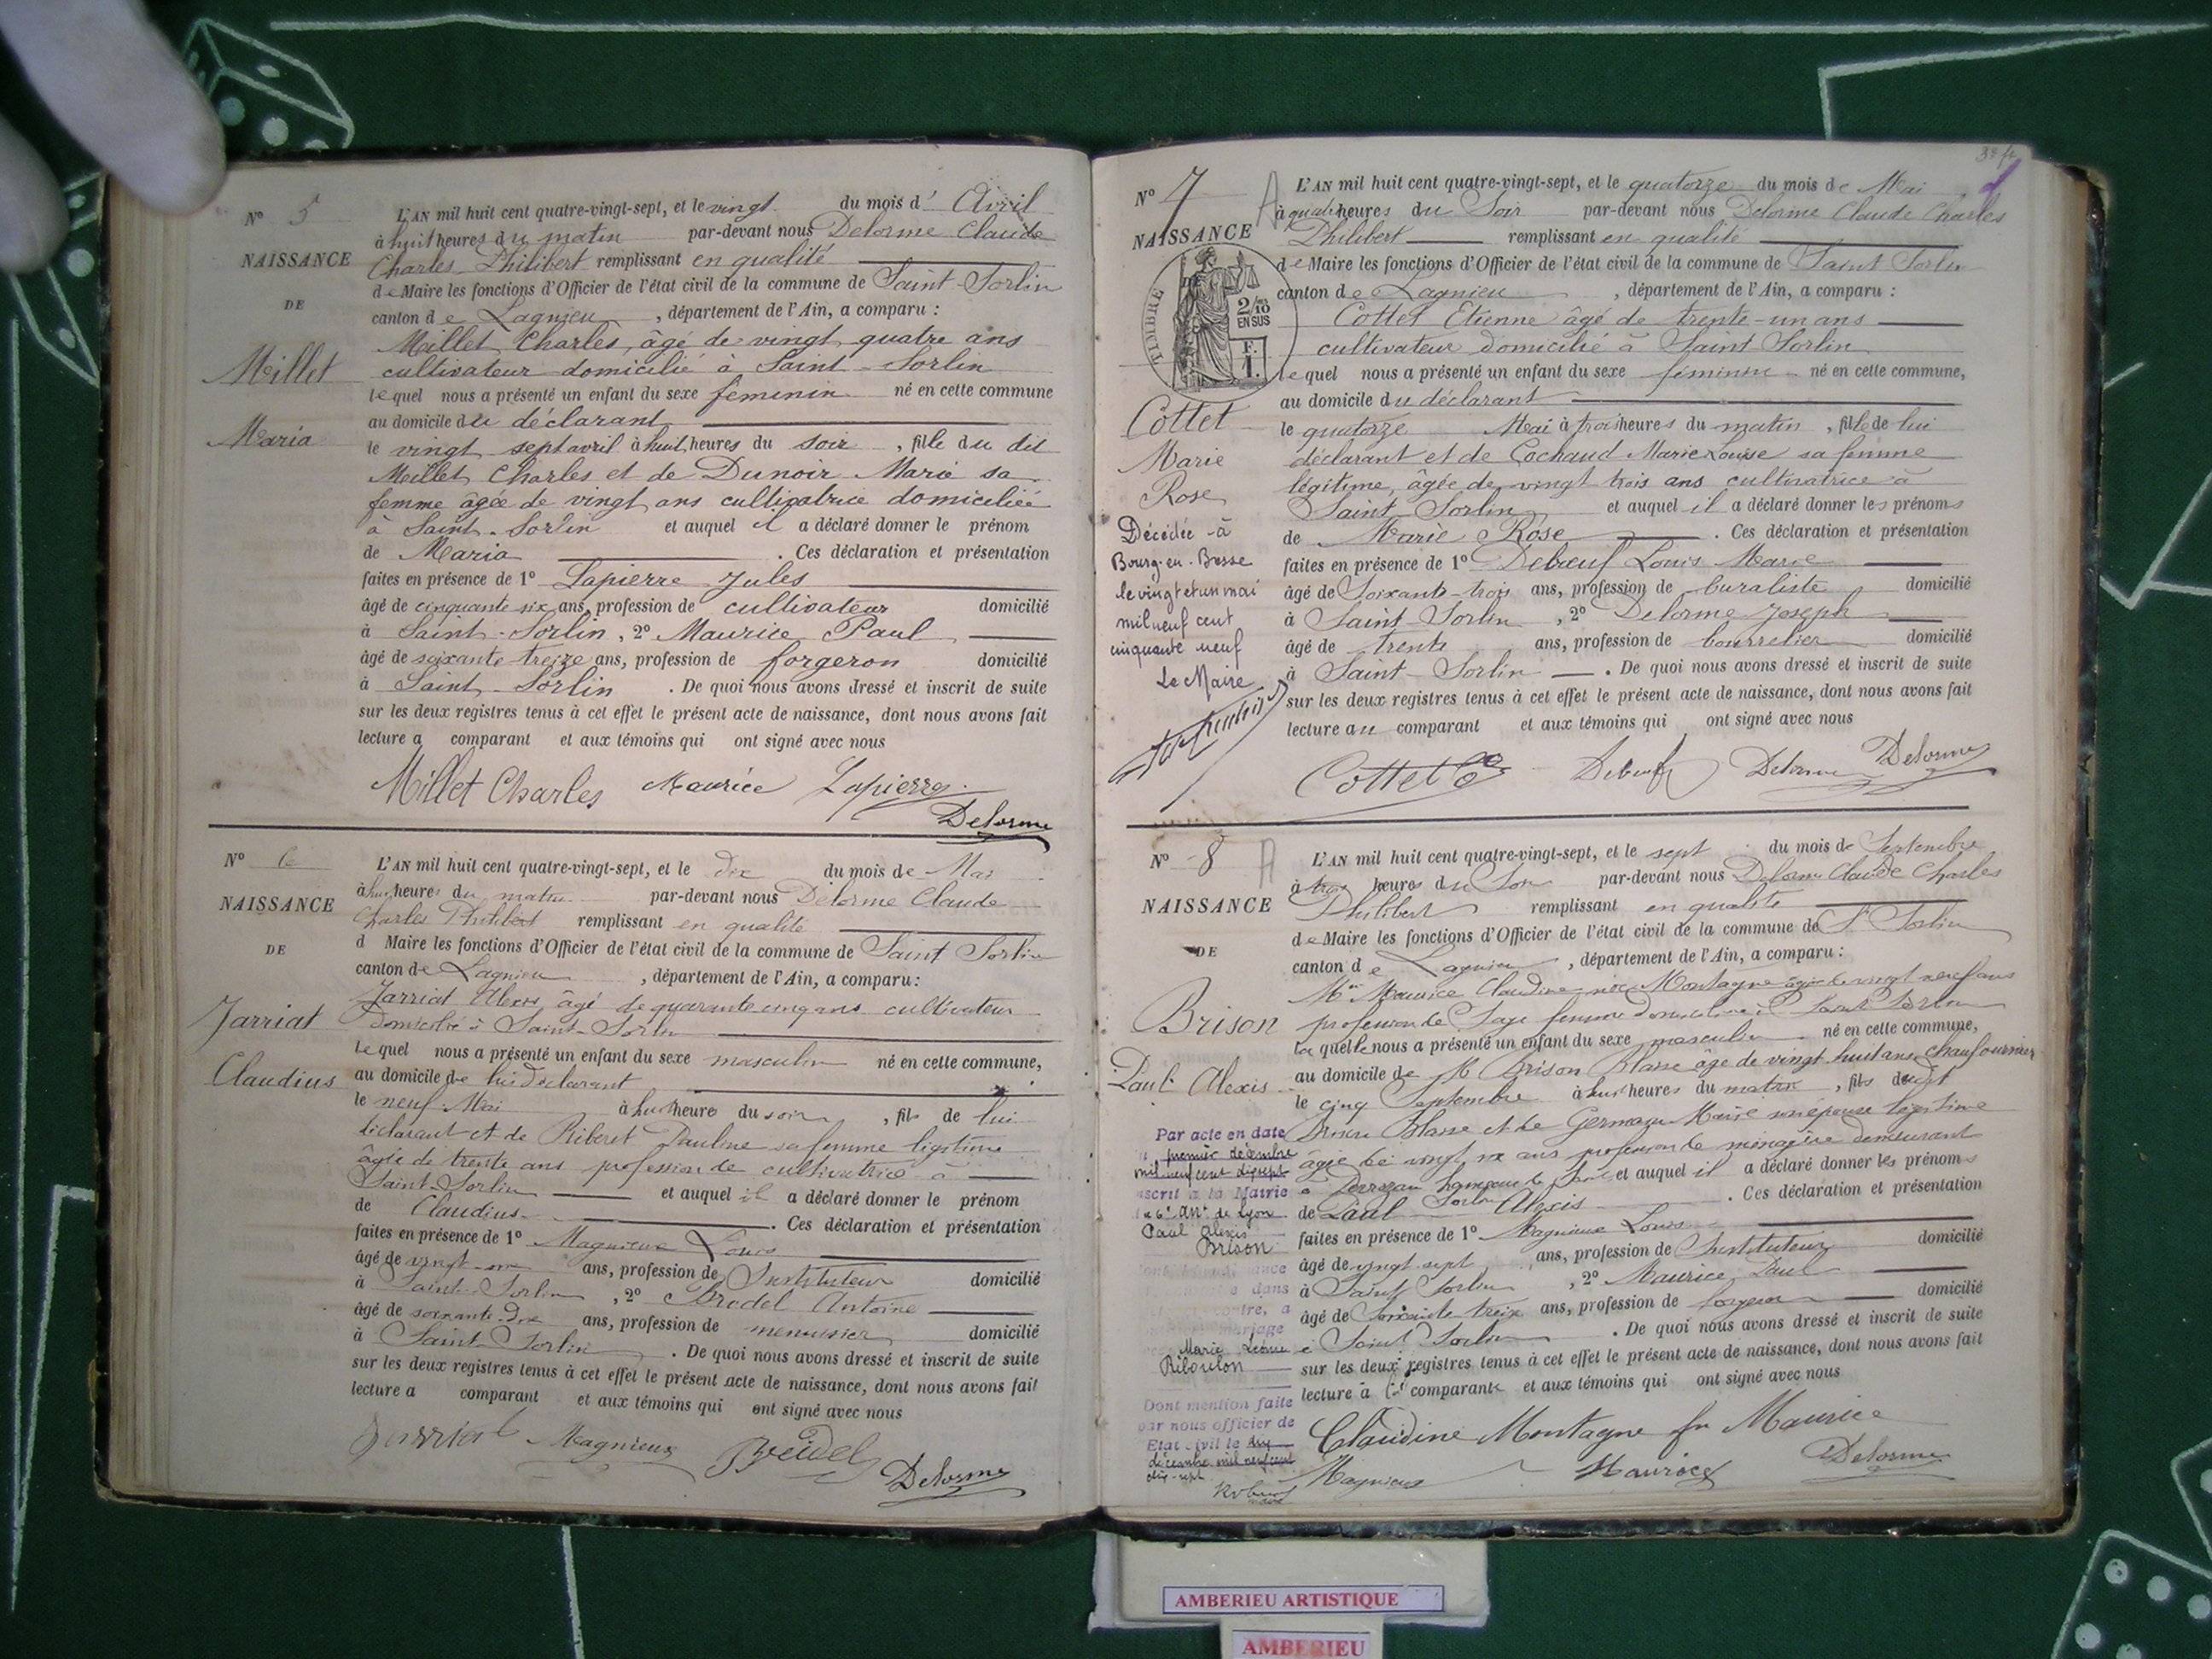 N° 5
NAISSANCE
DE
Millet
Maria
L'AN mil huit cent quatre-vingt-sept, et le vingt du mois d' Avril
à huit heures du matin par-devant nous Delorme Claude
Charles Philibert remplissant en qualité
de Maire les fonctions d'Officier de l'état civil de la commune de Saint-Sorlin
canton de Lagnieu, département de l'Ain, a comparu :
Millet Charles, âgé de vingt quatre ans
cultivateur domicilié à Saint-Sorlin
lequel nous a présenté un enfant du sexe féminin né en cette commune
au domicile du déclarant
le vingt sept avril à huit heures du soir, fille du dit
Millet Charles et de Dunoir Marie sa
femme âgée de vingt ans cultivatrice domiciliée
à Saint-Sorlin et auquel il a déclaré donner le prénom
de Maria. Ces déclaration et présentation
faites en présence de 1° Lapierre Jules
âgé de cinquante six ans, profession de cultivateur domicilié
à Saint-Sorlin, 2° Maurice Paul
âgé de soixante treize ans, profession de forgeron domicilié
à Saint-Sorlin. De quoi nous avons dressé et inscrit de suite
sur les deux registres tenus à cet effet le présent acte de naissance, dont nous avons fait
lecture a comparant et aux témoins qui ont signé avec nous
Millet Charles Maurice Lapierre
Delorme
N° 6
NAISSANCE
DE
Jarriat
Claudius
L'AN mil huit cent quatre-vingt-sept, et le dix du mois de Mai
à huit heures du matin par-devant nous Delorme Claude
Charles Philibert remplissant en qualité
d Maire les fonctions d'Officier de l'état civil de la commune de Saint Sorlin
canton de Lagnieu, département de l'Ain, a comparu :
Jarriat Alexis âgé de quarante cinq ans cultivateur
domicilié à Saint-Sorlin
lequel nous a présenté un enfant du sexe masculin né en cette commune,
au domicile de lui déclarant
le neuf Mai à huit heure du soir, fils de lui
déclarant et de Riberet Pauline sa femme légitime
âgée de trente ans profession de cultivatrice à
Saint-Sorlin et auquel il a déclaré donner le prénom
de Claudius. Ces déclaration et présentation
faites en présence de 1° Magnieux Louis
âgé de vingt ans, profession de Instituteur domicilié
à Saint-Sorlin, 2° Bredel Antoine
âgé de soixante-dix ans, profession de menuisier domicilié
à Saint-Sorlin. De quoi nous avons dressé et inscrit de suite
sur les deux registres tenus à cet effet le présent acte de naissance, dont nous avons fait
lecture a comparant et aux témoins qui ont signé avec nous
Jarriat Magnieux Breidel
Delorme
N° 7
NAISSANCE
DE
TIMBRE
2/10
EN SUS
F.
1.
Cottet
Marie
Rose
Décédée à
Bourg-en-Bresse
le vingt et un mai
mil neuf cent
cinquante neuf
Le Maire
A
L'AN mil huit cent quatre-vingt-sept, et le quatorze du mois de Mai
à quatre heures du Soir par-devant nous Delorme Claude Charles
Philibert remplissant en qualité
de Maire les fonctions d'Officier de l'état civil de la commune de Saint Sorlin
canton de Lagnieu, département de l'Ain, a comparu :
Cottet Etienne âgé de trente-un ans
cultivateur domicilié à Saint Sorlin
lequel nous a présenté un enfant du sexe féminin né en cette commune,
au domicile du déclarant
le quatorze Mai à trois heures du matin, fille de lui
déclarant et de Cochaud Marie Louise sa femme
légitime, âgée de vingt trois ans cultivatrice à
Saint Sorlin et auquel il a déclaré donner les prénoms
de Marie Rose. Ces déclaration et présentation
faites en présence de 1° Debœuf Louis Marie
âgé de Soixante-trois ans, profession de buraliste domicilié
à Saint Sorlin, 2° Delorme Joseph
âgé de trente ans, profession de bourrelier domicilié
à Saint-Sorlin. De quoi nous avons dressé et inscrit de suite
sur les deux registres tenus à cet effet le présent acte de naissance, dont nous avons fait
lecture au comparant et aux témoins qui ont signé avec nous
Cottet E Debœuf Delorme Delorme
N° 8
NAISSANCE
DE
Brison
Paul Alexis
Par acte en date
premier décembre
mil neuf cent dix sept
inscrit à la Mairie
du 6e arrt de Lyon
Paul Alexis
Brison
dans
contre, a
mariage
Marie Léonie
Riboulon
Dont mention faite
par nous officier de
Etat civil le dix
décembre mil neuf cent
dix-sept
A
L'AN mil huit cent quatre-vingt-sept, et le sept du mois de Septembre
à trois heures du Soir par-devant nous Delorme Claude Charles
Philibert remplissant en qualité
de Maire les fonctions d'Officier de l'état civil de la commune de St Sorlin
canton de Lagnieu, département de l'Ain, a comparu :
Me Maurice Claudine née Montagne âgée de vingt neuf ans
profession de Sage femme domiciliée à Saint Sorlin
laquelle nous a présenté un enfant du sexe masculin né en cette commune,
au domicile de M Brison Blaise âgé de vingt huit ans chaufournier
le cinq Septembre à huit heures du matin, fils dudit
Brison Blaise et de Germain Marie son épouse légitime
âgée de vingt six ans profession de ménagère demeurant
à hameau de St et auquel il a déclaré donner les prénoms
Sorlin
de Paul Alexis. Ces déclaration et présentation
faites en présence de 1° Magnieux Louis
âgé de vingt sept ans, profession de Instituteur domicilié
à Saint Sorlin, 2° Maurice Paul
âgé de Soixante treize ans, profession de forgeron domicilié
à Saint Sorlin. De quoi nous avons dressé et inscrit de suite
sur les deux registres tenus à cet effet le présent acte de naissance, dont nous avons fait
lecture à la comparante et aux témoins qui ont signé avec nous
Claudine Montagne fe Maurice
Magnieux Maurice Delorme
AMBERIEU ARTISTIQUE
AMBERIEU